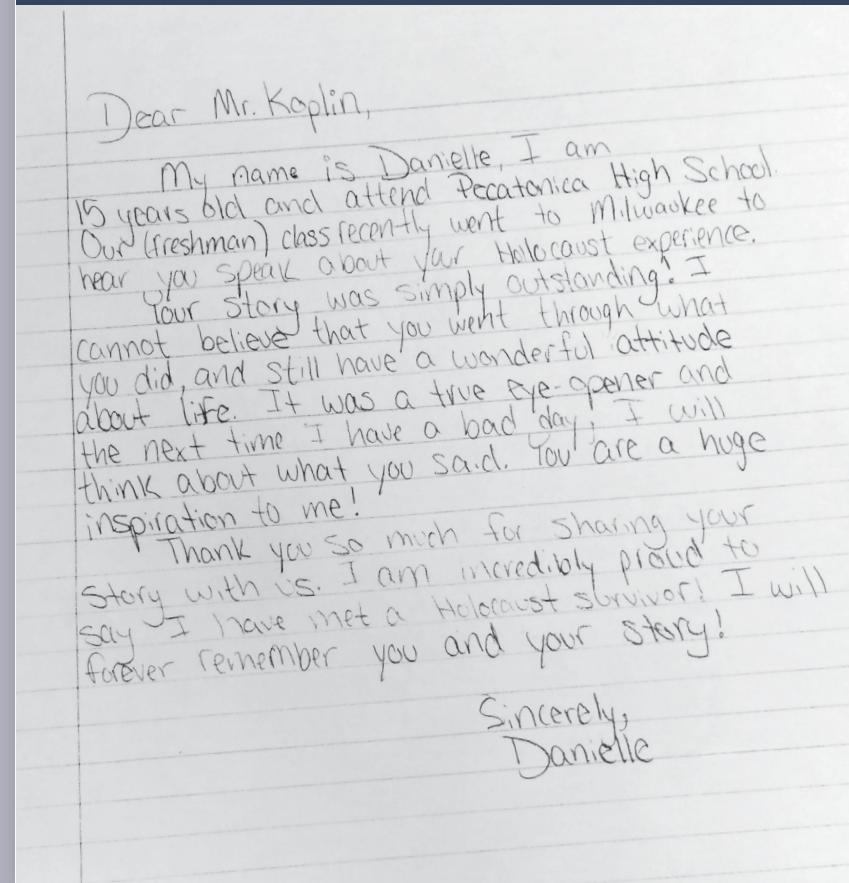 Dear Mr. Kaplin,
My name is Danielle, I am
15 years old and attend Pecatonica High School.
Our (freshman) class recently went to Milwaukee to
hear you speak about your Holocaust experience.
Your story was simply outstanding! I
cannot believe that you went through what
you did, and still have a wonderful attitude
about life. It was a true eye-opener and
the next time I have a bad day, I will
think about what you said. You are a huge
inspiration to me!
Thank you so much for sharing your
story with us. I am incredibly proud to
say I have met a Holocaust survivor! I will
forever remember you and your story!
Sincerely,
Danielle